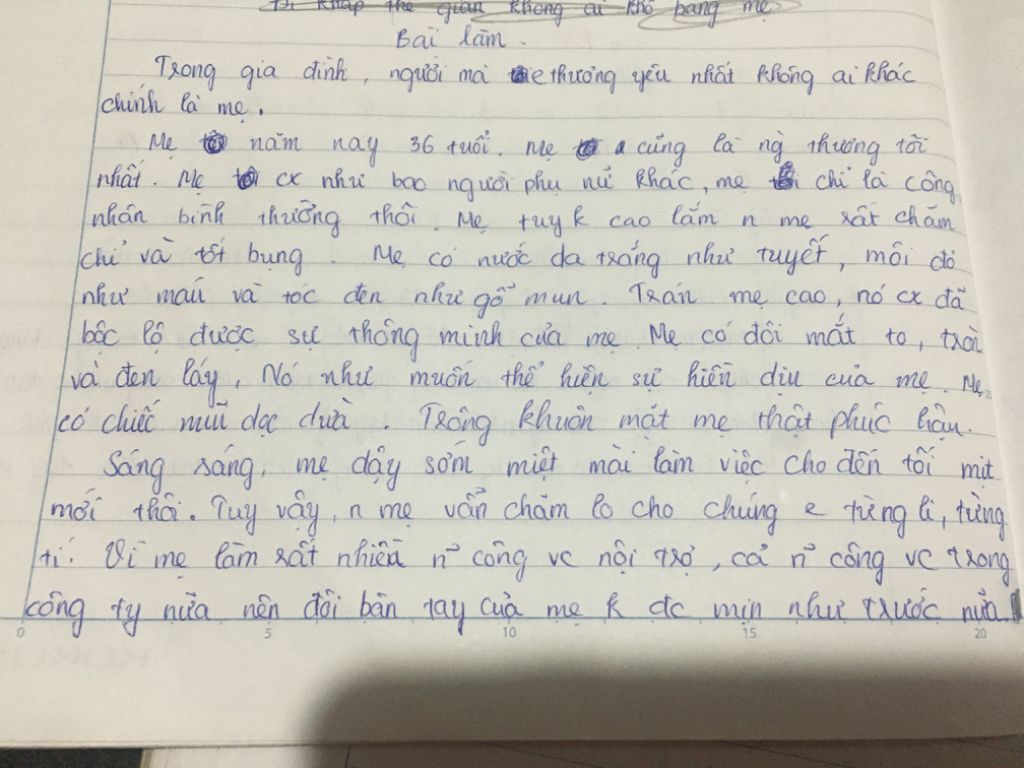 Đi khắp thế gian không ai khổ bằng mẹ
Bài làm.
Trong gia đình, người mà e thương yêu nhất không ai khác
chính là mẹ.
Mẹ năm nay 36 tuổi. Mẹ cũng là ng thương tôi
nhất. Mẹ cx như bao người phụ nữ khác, mẹ chỉ là công
nhân bình thường thôi. Mẹ tuy k cao lắm n mẹ rất chăm
chỉ và tốt bụng. Mẹ có nước da trắng như tuyết, môi đỏ
như máu và tóc đen như gỗ mun. Trán mẹ cao, nó cx đã
bộc lộ được sự thông minh của mẹ. Mẹ có đôi mắt to, tròn
và đen láy. Nó như muốn thể hiện sự hiền dịu của mẹ. Mẹ
có chiếc mũi dọc dừa. Trông khuôn mặt mẹ thật phúc hậu.
Sáng sáng, mẹ dậy sớm miệt mài làm việc cho đến tối mịt
mới thôi. Tuy vậy, n mẹ vẫn chăm lo cho chúng e từng li, từng
tí. Vì mẹ làm rất nhiều n~ công vc nội trợ, cả n~ công vc trong
công ty nữa nên đôi bàn tay của mẹ k đc mịn như trước nữa.
0 5 10 15 20